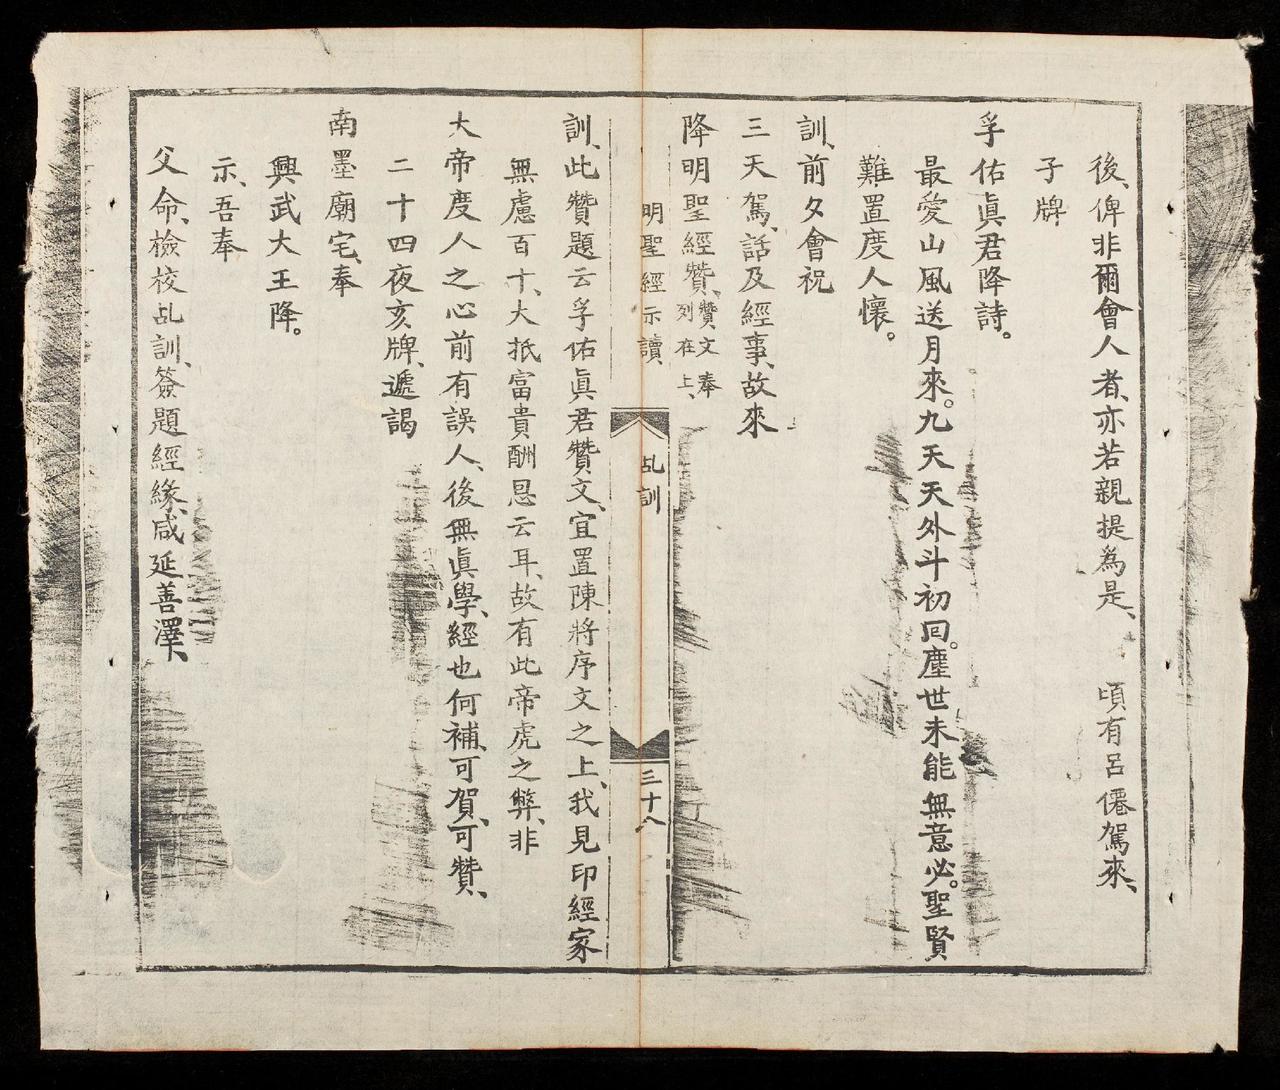 後、俾非爾會人者、亦若親提為是、　頃有呂僊駕來、
子牌
孚佑眞君降詩。
最愛山風送月來。九天天外斗初回。塵世未能無意必。聖賢
難置度人懷。
訓、前夕會祝
三天駕、話及經事、故來
降明聖經贊、贊文奉列在上、
明聖經示讀
乩訓
三十八
訓、此贊題云孚佑眞君贊文、宜置陳將序文之上、我見印經家
無慮百十、大抵富貴酬恩云耳、故有此帝虎之弊、非
大帝度人之心前有誤人、後無眞學、經也何補、可賀、可贊、
二十四夜亥牌、遞謁
南墨廟宅、奉
興武大王降。
示、吾奉
父命、檢校乩訓、簽題經緣、咸延善澤、